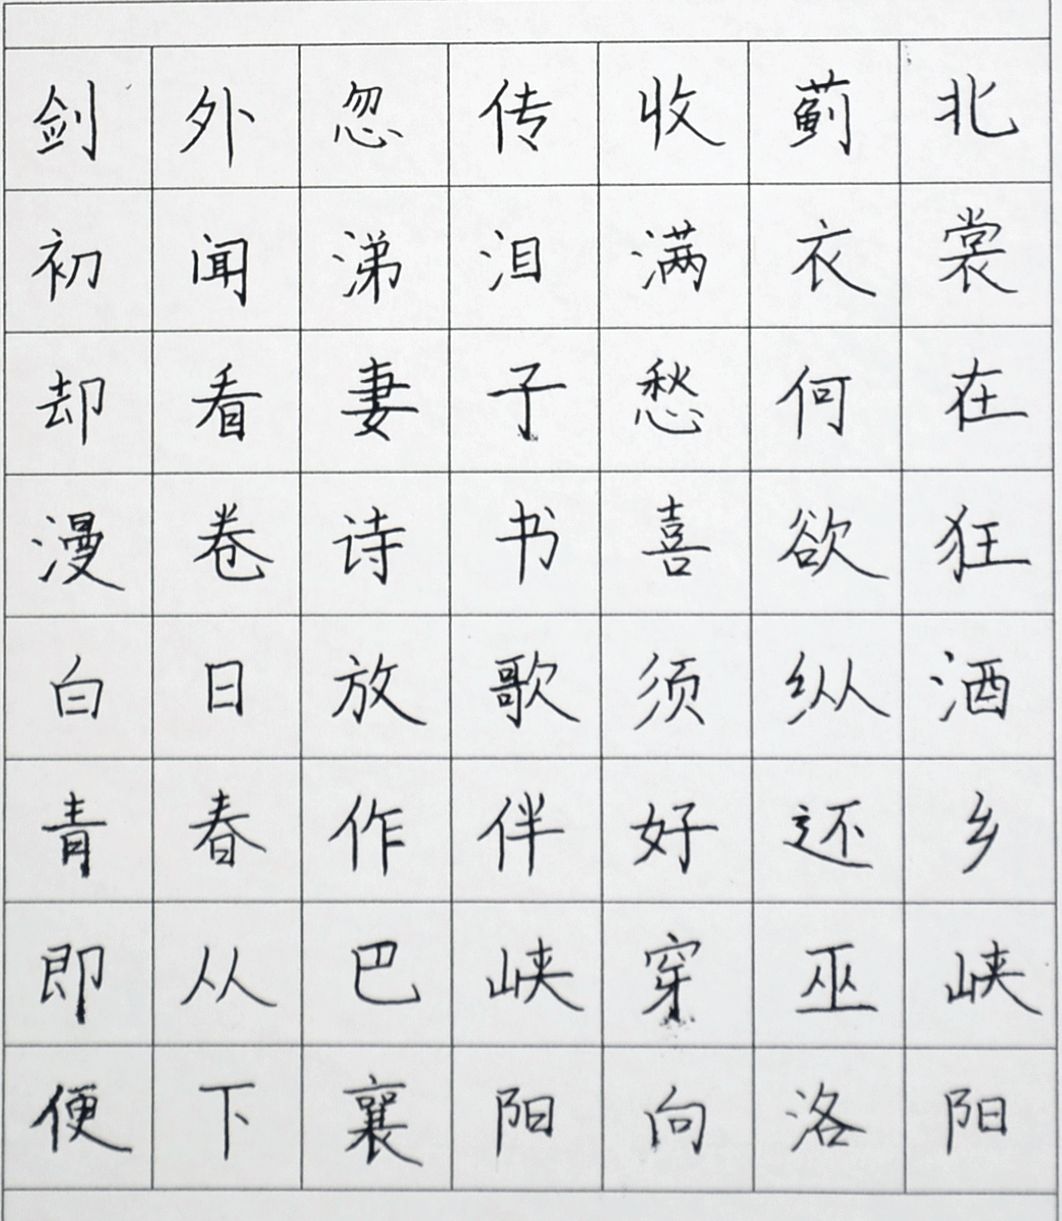 剑外忽传收蓟北
初闻涕泪满衣裳
却看妻子愁何在
漫卷诗书喜欲狂
白日放歌须纵酒
青春作伴好还乡
即从巴峡穿巫峡
便下襄阳向洛阳